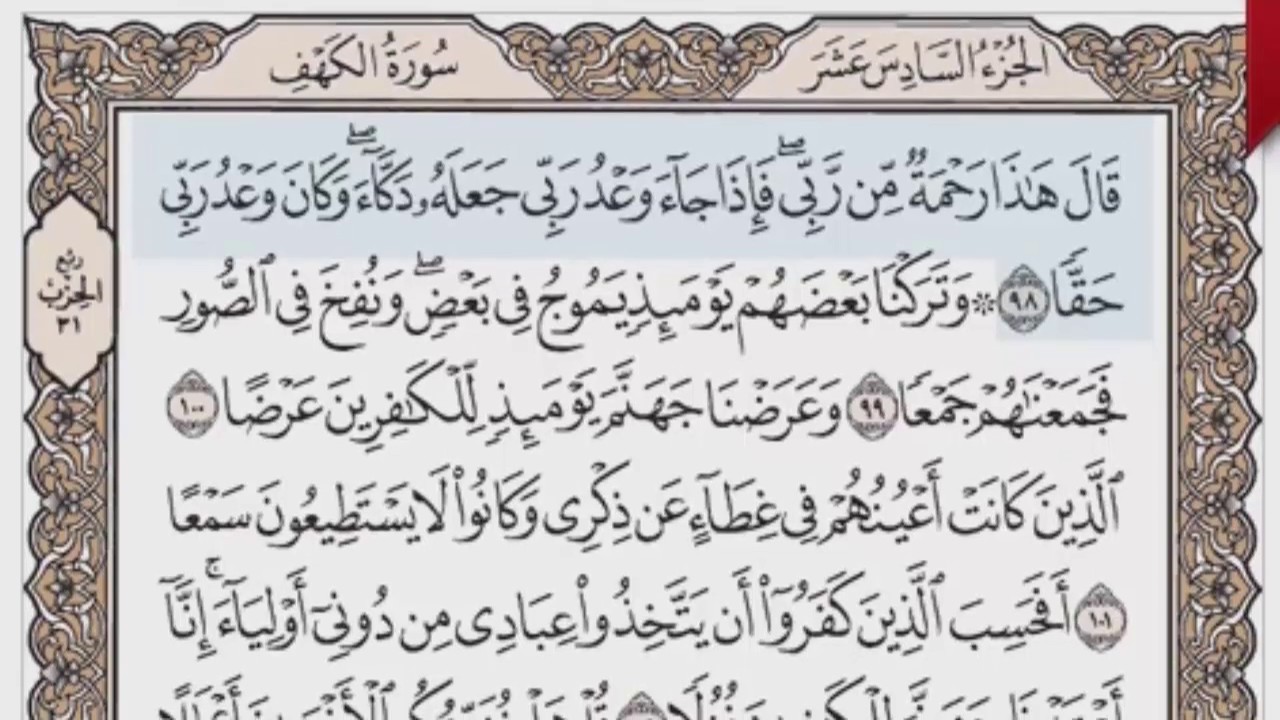 الجُزْءُ السَّادِسَ عَشَرَ
سُورَةُ الكَهْفِ
قَالَ هَٰذَا رَحْمَةٌ مِّن رَّبِّيۖ فَإِذَا جَآءَ وَعْدُ رَبِّي جَعَلَهُۥ دَكَّآءَۖ وَكَانَ وَعْدُ رَبِّي
حَقًّا ٩٨ ۞ وَتَرَكْنَا بَعْضَهُمْ يَوْمَئِذٍ يَمُوجُ فِي بَعْضٍۖ وَنُفِخَ فِي ٱلصُّورِ
فَجَمَعْنَٰهُمْ جَمْعًا ٩٩ وَعَرَضْنَا جَهَنَّمَ يَوْمَئِذٍ لِّلْكَٰفِرِينَ عَرْضًا ١٠٠
ٱلَّذِينَ كَانَتْ أَعْيُنُهُمْ فِي غِطَآءٍ عَن ذِكْرِي وَكَانُوا۟ لَا يَسْتَطِيعُونَ سَمْعًا
١٠١ أَفَحَسِبَ ٱلَّذِينَ كَفَرُوٓا۟ أَن يَتَّخِذُوا۟ عِبَادِي مِن دُونِيٓ أَوْلِيَآءَۚ إِنَّآ
ربع
الحزب
٣١